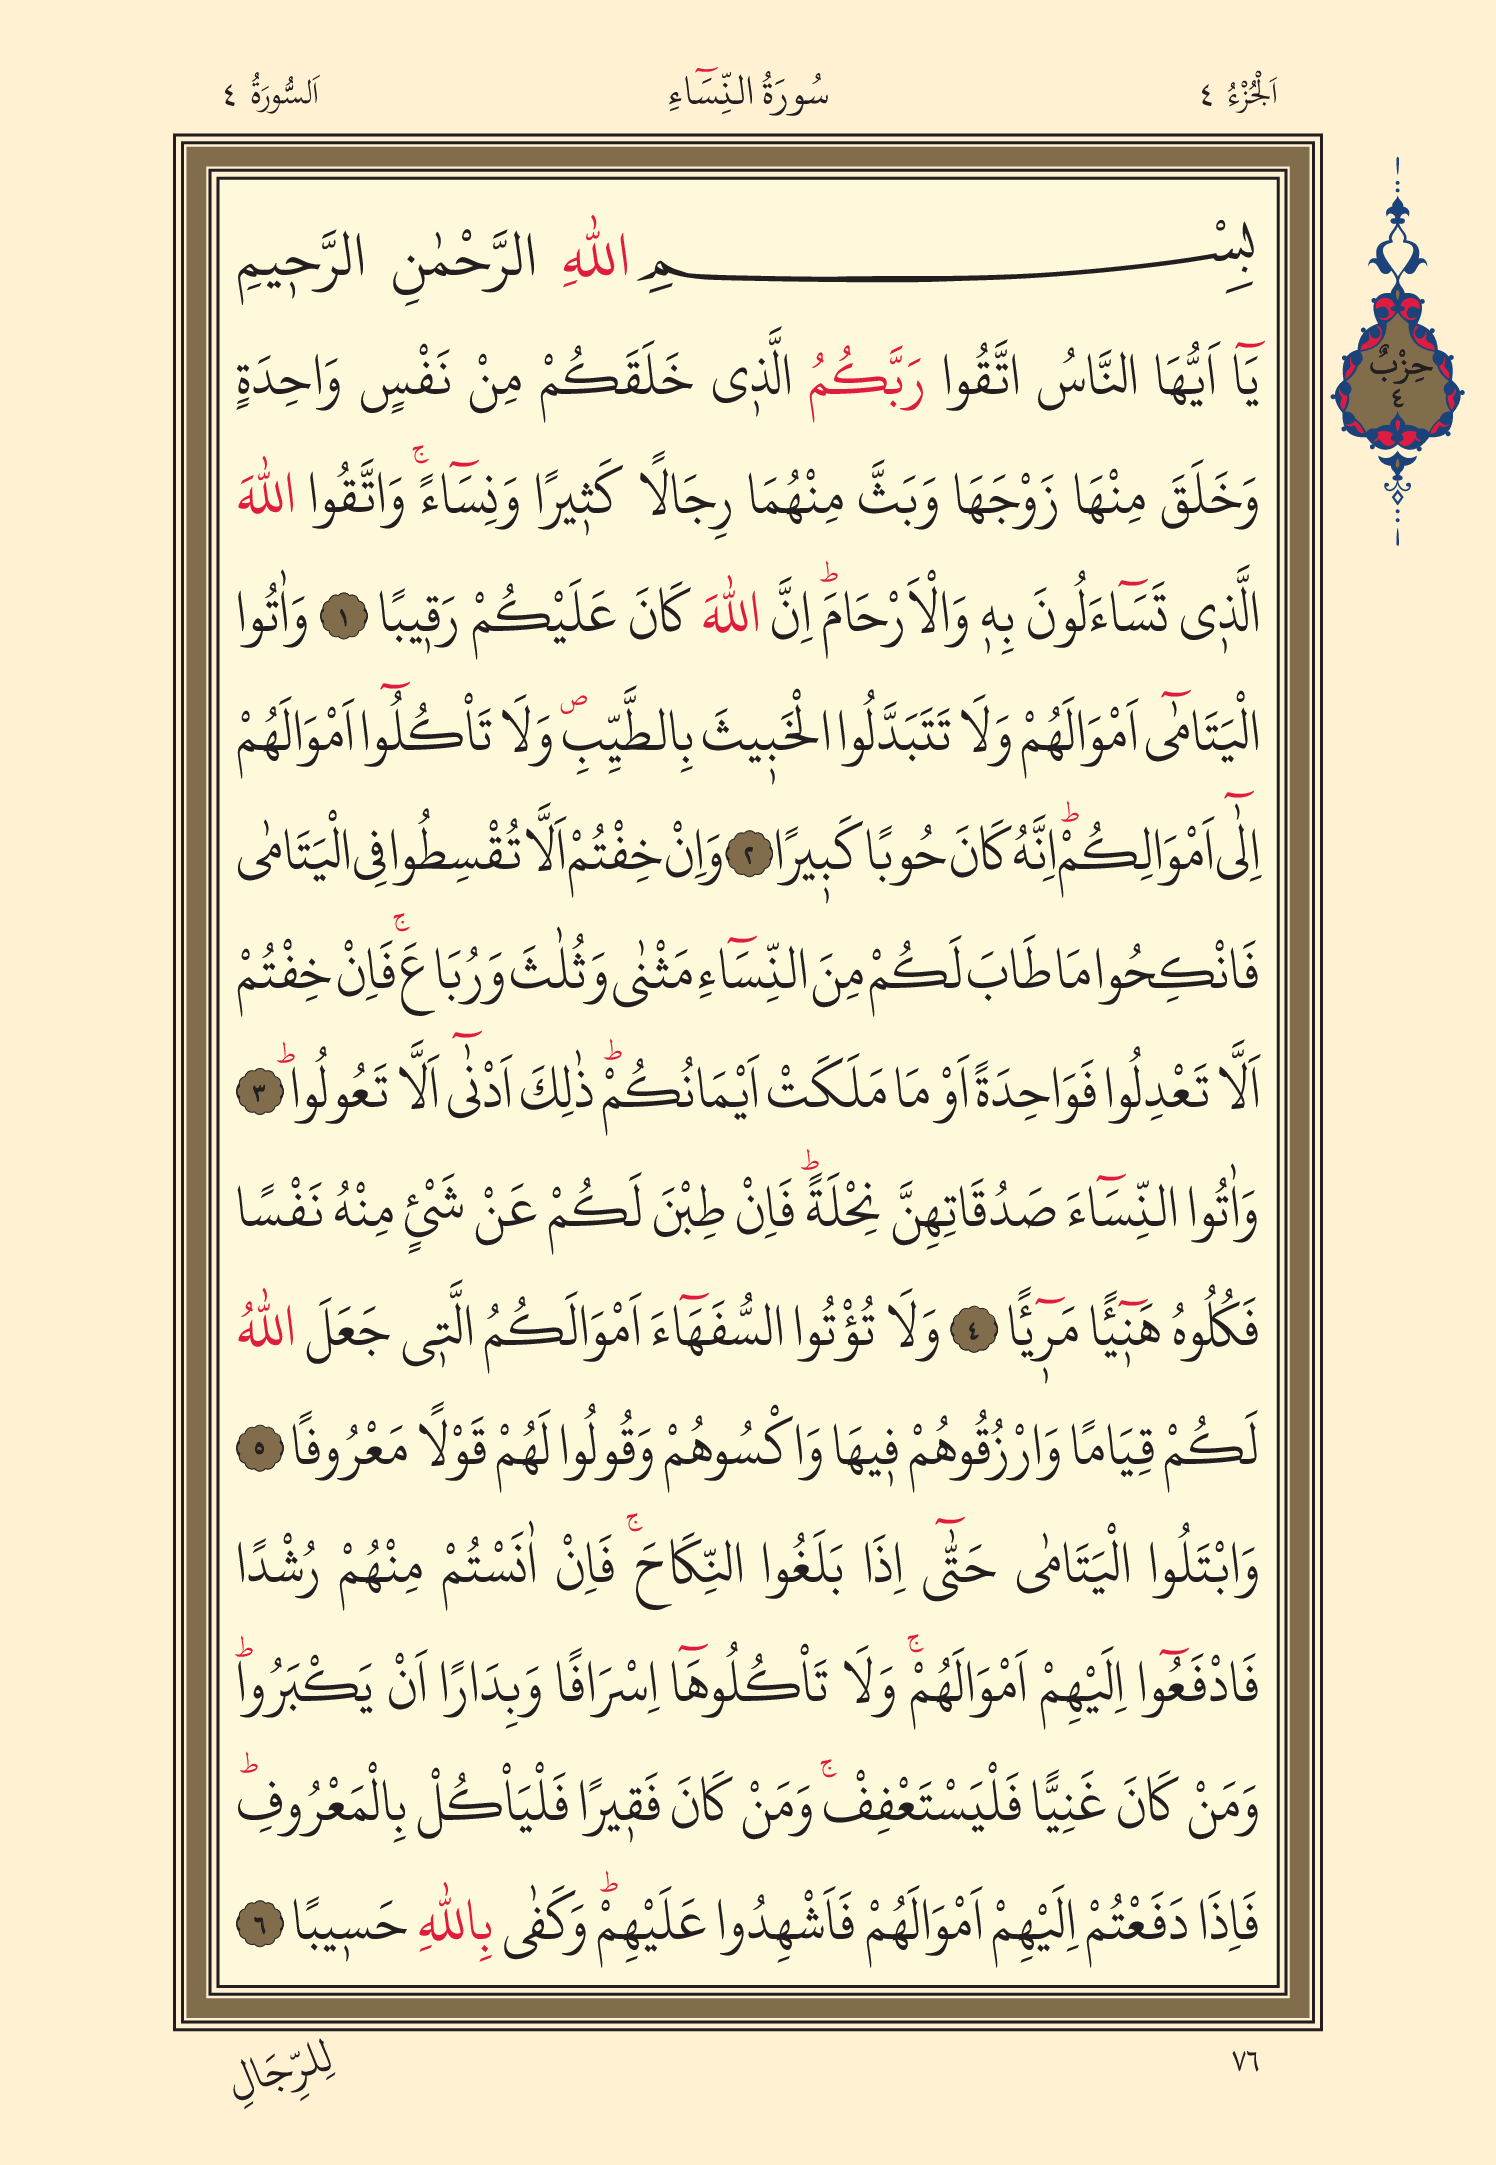 اَلْجُزْءُ ٤
سُورَةُ النِّسَٓاءِ
اَلسُّورَةُ ٤
حِزْبٌ
٤
بِسْمِ اللّٰهِ الرَّحْمٰنِ الرَّح۪يمِ
يَٓا اَيُّهَا النَّاسُ اتَّقُوا رَبَّكُمُ الَّذ۪ى خَلَقَكُمْ مِنْ نَفْسٍ وَاحِدَةٍ
وَخَلَقَ مِنْهَا زَوْجَهَا وَبَثَّ مِنْهُمَا رِجَالًا كَث۪يرًا وَنِسَٓاءًۚ وَاتَّقُوا اللّٰهَ
الَّذ۪ى تَسَٓاءَلُونَ بِه۪ وَالْاَرْحَامَۜ اِنَّ اللّٰهَ كَانَ عَلَيْكُمْ رَق۪يبًا ١ وَاٰتُوا
الْيَتَامٰٓى اَمْوَالَهُمْ وَلَا تَتَبَدَّلُوا الْخَب۪يثَ بِالطَّيِّبِۖ وَلَا تَاْكُلُٓوا اَمْوَالَهُمْ
اِلٰٓى اَمْوَالِكُمْۜ اِنَّهُ كَانَ حُوبًا كَب۪يرًا ٢ وَاِنْ خِفْتُمْ اَلَّا تُقْسِطُوا فِى الْيَتَامٰى
فَانْكِحُوا مَا طَابَ لَكُمْ مِنَ النِّسَٓاءِ مَثْنٰى وَثُلٰثَ وَرُبَاعَۚ فَاِنْ خِفْتُمْ
اَلَّا تَعْدِلُوا فَوَاحِدَةً اَوْ مَا مَلَكَتْ اَيْمَانُكُمْۜ ذٰلِكَ اَدْنٰٓى اَلَّا تَعُولُواۜ ٣
وَاٰتُوا النِّسَٓاءَ صَدُقَاتِهِنَّ نِحْلَةًۜ فَاِنْ طِبْنَ لَكُمْ عَنْ شَىْءٍ مِنْهُ نَفْسًا
فَكُلُوهُ هَن۪ٓيـًٔا مَر۪ٓيـًٔا ٤ وَلَا تُؤْتُوا السُّفَهَٓاءَ اَمْوَالَكُمُ الَّت۪ى جَعَلَ اللّٰهُ
لَكُمْ قِيَامًا وَارْزُقُوهُمْ ف۪يهَا وَاكْسُوهُمْ وَقُولُوا لَهُمْ قَوْلًا مَعْرُوفًا ٥
وَابْتَلُوا الْيَتَامٰى حَتّٰٓى اِذَا بَلَغُوا النِّكَاحَۚ فَاِنْ اٰنَسْتُمْ مِنْهُمْ رُشْدًا
فَادْفَعُٓوا اِلَيْهِمْ اَمْوَالَهُمْۚ وَلَا تَاْكُلُوهَٓا اِسْرَافًا وَبِدَارًا اَنْ يَكْبَرُواۜ
وَمَنْ كَانَ غَنِيًّا فَلْيَسْتَعْفِفْۚ وَمَنْ كَانَ فَق۪يرًا فَلْيَاْكُلْ بِالْمَعْرُوفِۜ
فَاِذَا دَفَعْتُمْ اِلَيْهِمْ اَمْوَالَهُمْ فَاَشْهِدُوا عَلَيْهِمْۜ وَكَفٰى بِاللّٰهِ حَس۪يبًا ٦
٧٦
لِلرِّجَالِ